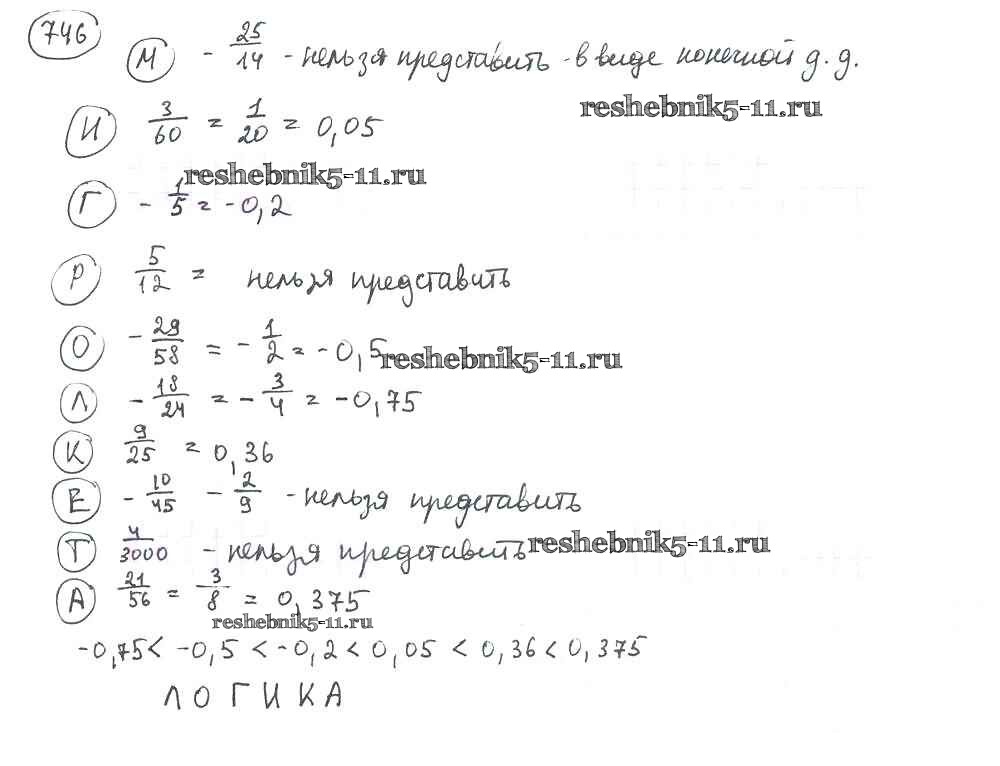 746
М - 25/14 - нельзя представить - в виде конечной д.д.
reshebnik5-11.ru
И 3/60 = 1/20 = 0,05
reshebnik5-11.ru
Г - 1/5 = -0,2
Р 5/12 = нельзя представить
О - 29/58 = - 1/2 = -0,5
reshebnik5-11.ru
Л - 18/24 = - 3/4 = -0,75
К 9/25 = 0,36
Е - 10/45 - 2/9 - нельзя представить
Т 4/3000 - нельзя представить
reshebnik5-11.ru
А 21/56 = 3/8 = 0,375
reshebnik5-11.ru
-0,75 < -0,5 < -0,2 < 0,05 < 0,36 < 0,375
Л О Г И К А